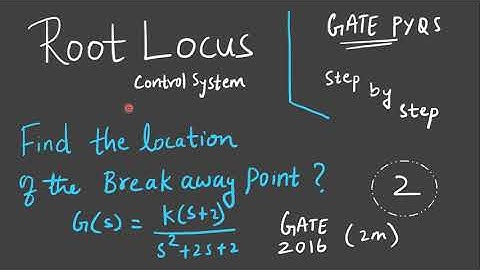 Root Locus
Control System
GATE PYQS
Step
by
Step
Find the location
of the Break away Point ?
G(s) = K(s+2) / s²+2s+2
2
GATE
2016 (2m)